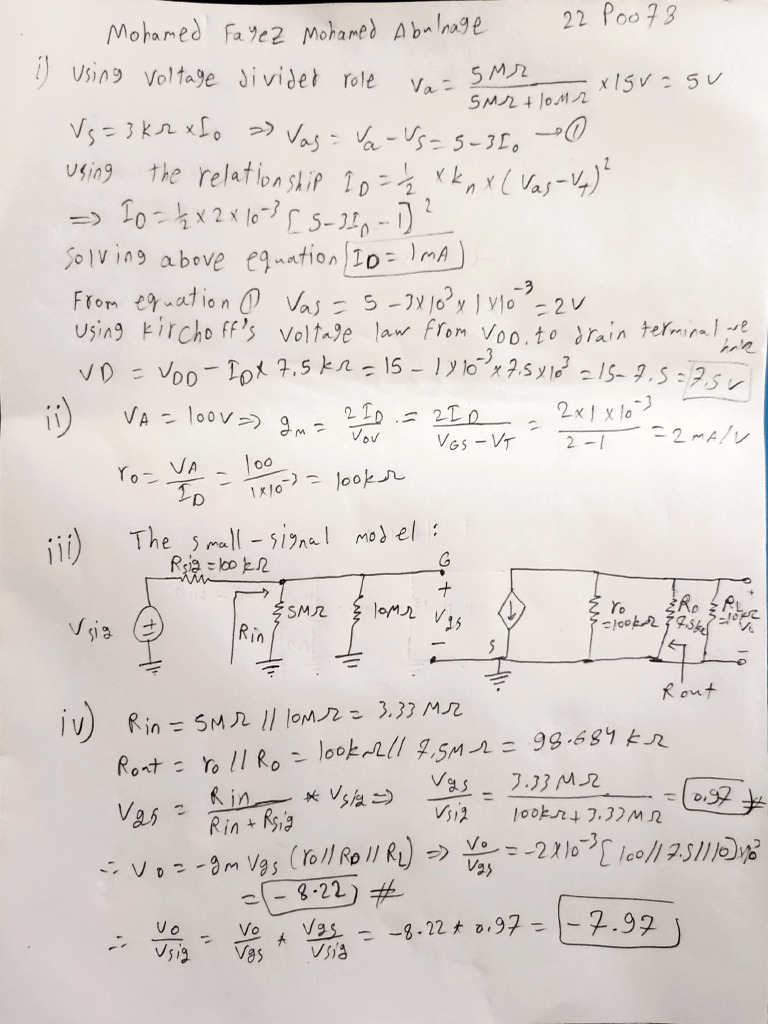 Mohamed Fayez Mohamed Abulnage 22 P0073
i) Using voltage divider role Va = 5MΩ / (5MΩ + 10MΩ) × 15V = 5V
Vs = 3kΩ × I₀ => Vas = Va - Vs = 5 - 3I₀ → ①
Using the relationship ID = 1/2 × kn × (Vas - Vt)²
=> ID = 1/2 × 2 × 10⁻³ [5 - 3ID - 1]²
Solving above equation ID = 1mA
From equation ① Vas = 5 - 3×10³ × 1×10⁻³ = 2V
Using Kirchoff's voltage law from VDD. to drain terminal we have
VD = VDD - ID × 7.5 kΩ = 15 - 1×10⁻³ × 7.5×10³ = 15 - 7.5 = 7.5V
ii) VA = 100V => gm = 2ID / Vov = 2ID / (VGS - VT) = 2×1×10⁻³ / (2 - 1) = 2 mA/V
ro = VA / ID = 100 / (1×10⁻³) = 100kΩ
iii) The small-signal model :
Rsig = 100 kΩ
G
+
Vsig
Rin
5MΩ
10MΩ
Vgs
-
S
ro = 100kΩ
RD 7.5kΩ
RL = 10kΩ
+
Vo
-
Rout
iv) Rin = 5MΩ // 10MΩ = 3.33 MΩ
Rout = ro // RD = 100kΩ // 7.5MΩ = 98.684 kΩ
Vgs = Rin / (Rin + Rsig) * Vsig => Vgs / Vsig = 3.33MΩ / (100kΩ + 3.33MΩ) = 0.97 #
∴ Vo = -gm Vgs (ro // RD // RL) => Vo / Vgs = -2×10⁻³ [100 // 7.5 // 10] × 10³
= -8.22 #
∴ Vo / Vsig = Vo / Vgs * Vgs / Vsig = -8.22 * 0.97 = -7.97